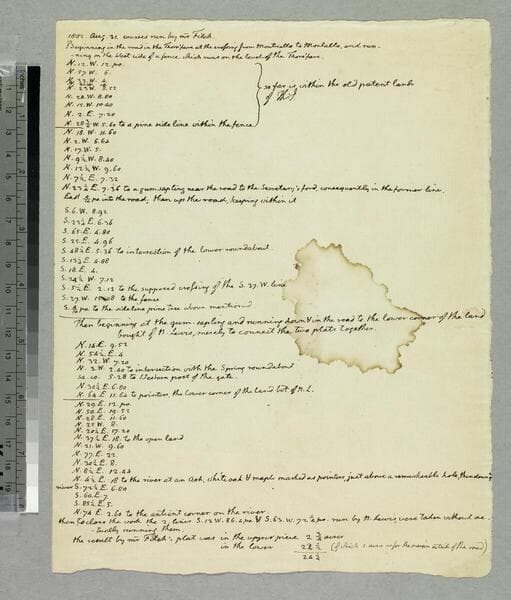 1802 Aug. 31. courses run by mr Fitch.
Beginning in the road in the Thorofare at the crossing from Monticello to Montalto, and run-
-ning on the West side of a fence which runs on the level of the Thorofare.
N. 12. W. 12. po.
N. 57. W. 6.
N. 33. W. 4.
N. 23. W. 8.52
N. 20. W. 8.80
N. 15. W. 10.40
N. 2. E. 7.20
N. 28 ½ W. 5.60 to a pine side line within the fence
so far is within the old patent lands
of Th:J
N. 18. W. 11.60
N. 2. W. 6.64
N. 17. W. 5.
N. 9 ½ W. 8.40
N. 12 ½ W. 9.60
N. 7 ½ E. 7.32
N. 23 ½ E. 7.36 to a gum sapling near the road to the Secretary's ford, consequently in the former line.
East po into the road; then up the road, keeping within it
S. 6. W. 8.92
S. 23 ½ E. 6.36
S. 65. E. 4.80
S. 25. E. 4.96
S. 48 ½ E. 5.36 to intersection of the lower roundabout
S. 13 ½ E. 6.88
S. 18. E. 4.
S. 24 ½ W. 7.12
S. 5 ½ E. 2.12 to the supposed crossing of the S. 27. W. line
S. 27. W. to the fence
po to the sideline pine tree above mentioned
Then beginning at the gum-sapling and running down in the road to the lower corner of the land
bought of N. Lewis, merely to connect the two plats together.
N. 14 E. 9.52
N. 54 ½ E. 4
N. 32. W. 7.20
N. 3. W. 2.40 to intersection with the Spring roundabout
sa. co. 5.28 to Western post of the gate.
N. 30 ½ E. 6.80
N. 64 E. 11.64 to pointers, the lower corner of the land bot of N. L.
N. 29 E. 12. po.
N. 50. E. 19.52
N. 28 E. 11.60
N. 25 W. 8.
N. 20 ½ E. 17.20
N. 37 ½ E. 18. to the open land
N. 21. W. 9.60
N. 77. E. 22.
N. 30 ½ E. 8.
N. 8 ½ E. 12.43
N. 4 ½ E. 18 to the river at an Ash, white oak & maple marked as pointers, just above a remarkeable hole, then down y
river S. 72 ½ E. 6.80
S. 60. E. 7
S. 85 ½ E. 5.
N. 74 E. 2.60 to the antient corner on the river.
then to close the work the 2. lines S. 12 W. 86.4 po. & S. 63. W. 72 po. run by N. Lewis, were taken without ac-
-tually running them.
the result by mr Fitch's plat was in the upper piece 2 ¾ acres
in the lower
24 ½